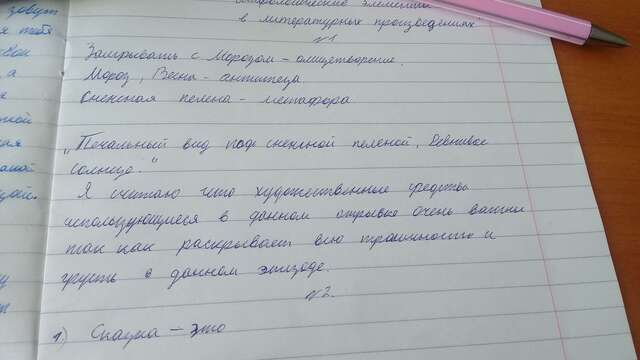 зовут
мифологические элементы
в литературных произведениях
№1
Замрывать с Морозом – олицетворение.
Мороз, Весна – антитеза.
Снежная пелена – метафора
„Печальный вид под снежной пеленой, Ревнивое
солнце."
Я считаю что художественные средства
использующиеся в данном отрывке очень важны
так как раскрывает всю трагичность и
грусть в данном эпизоде.
№2.
1) Сказка – это